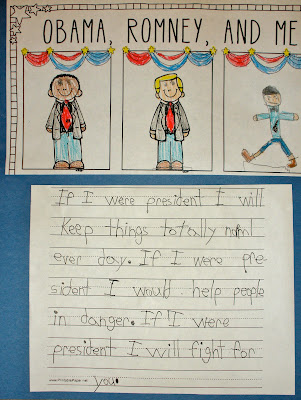 OBAMA, ROMNEY, AND ME
If I were president I will
Keep things totally
ever day. If I were pre-
sident I would help people
in danger. If I were
president I will fight for
you.